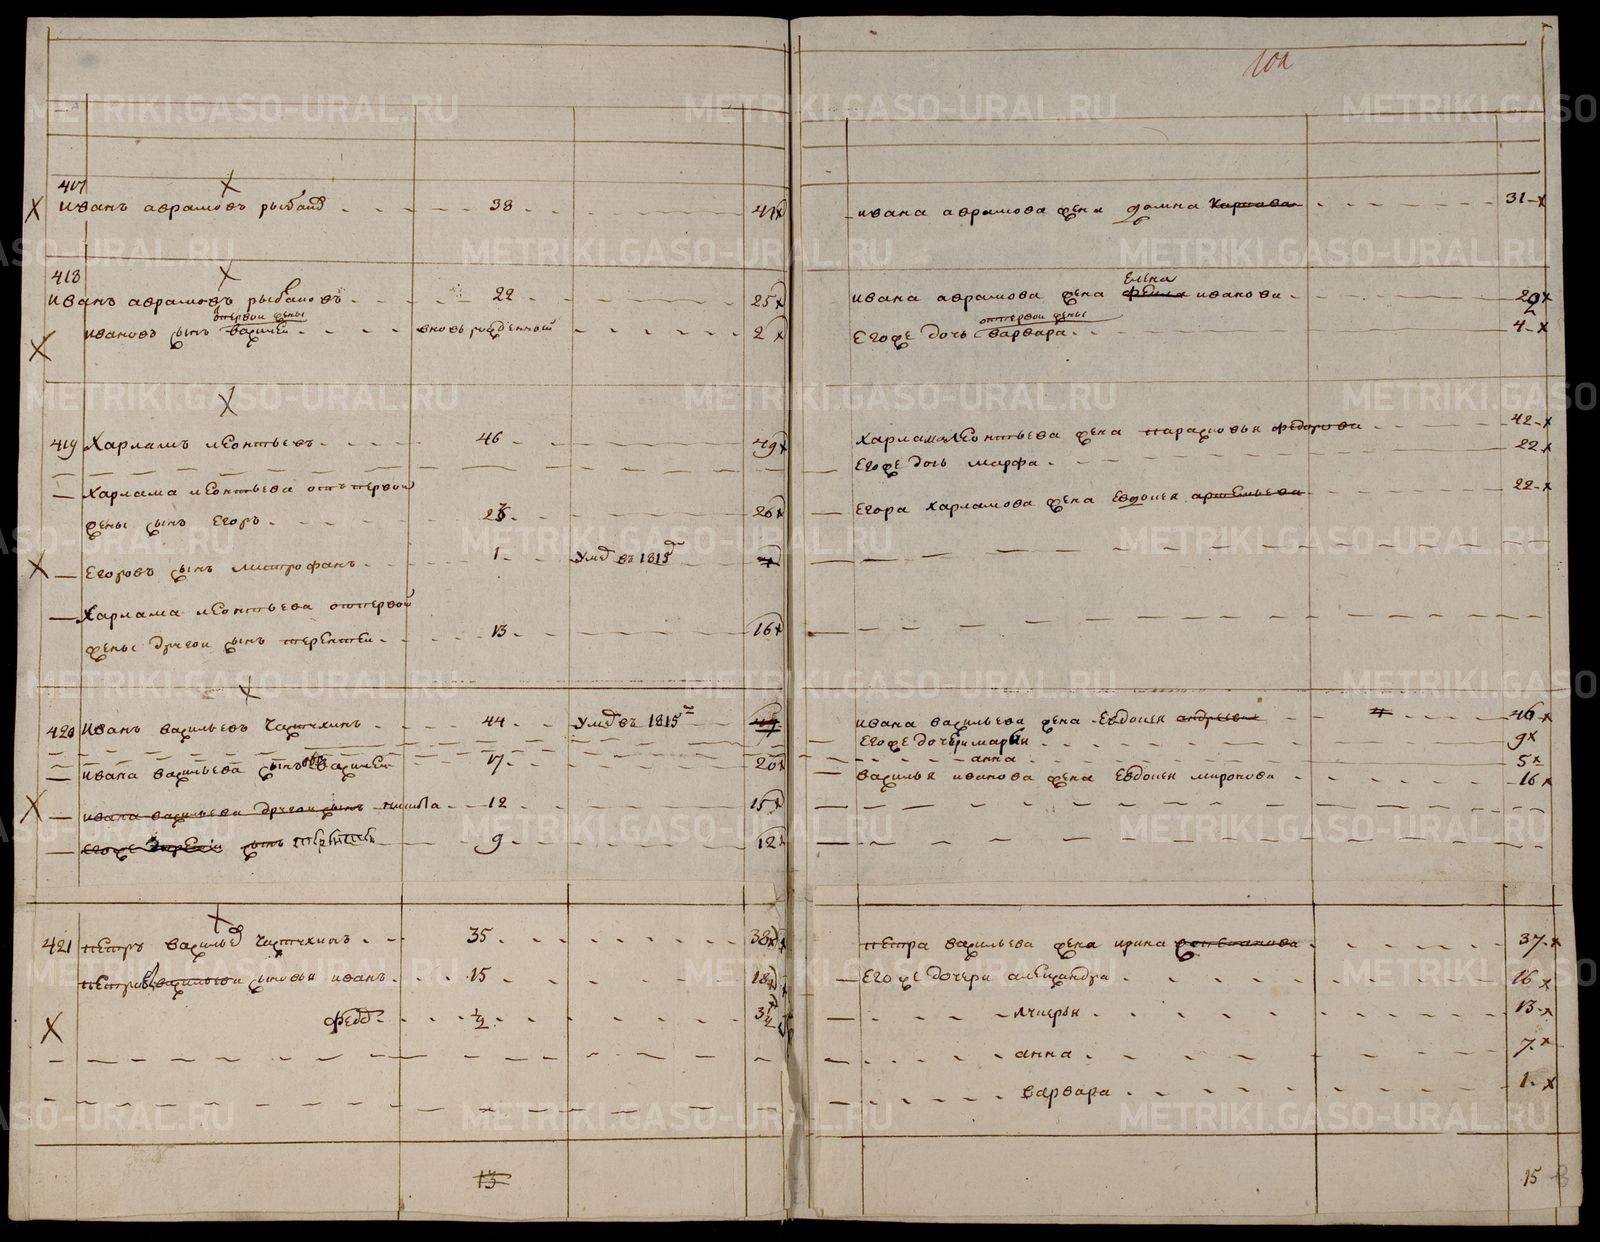 10а
417
Иванъ Аврамовъ Рыбаков 38 41
418
Иванъ Аврамовъ Рыбаковъ 22 25
от первой жены
Ивановъ сынъ Василей вновь рожденной 2
419 Харламъ Леонтьевъ 46 49
Харлама Леонтьева отъ первой
жены сынъ Егоръ 23 26
Егоровъ сынъ Митрофанъ 1 Умр въ 1815
Харлама Леонтьева от первой
жены другой сынъ Терентей 13 16
420 Иванъ Васильевъ 44 Умр въ 1815
Ивана Васильева сынъ Василей 17 20
Ивана Васильева другой сынъ Никита 12 15
Его же сынъ 9 12
421 Петръ Васильев 35 38
Петровы сыновья Иванъ 15 18
Федор 1/2 3 1/2
13
Ивана Аврамова жена Домна Карпова 31
Елена
Ивана Аврамова жена Иванова
от первой жены
Его же дочь Варвара 4
Харлама Леонтьева жена Парасковья Федорова 42
Его же дочь Марфа 22
Егора Харламова жена Евдокея Артемьева 22
Ивана Васильева жена Евдокея Андреева 46
Его же дочери Марья 9
Анна 5
Василья Иванова жена Евдокея Миронова 16
Петра Васильева жена Ирина Степанова 37
Его же дочери Александра 16
Лукерья 13
Анна 7
Варвара 1
15
METRIKI.GASO-URAL.RU